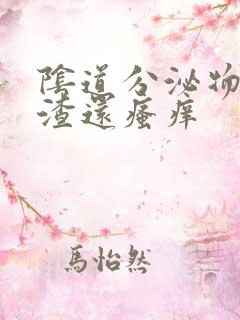 陰道分泌物
渣還瘙痒
馬怡然